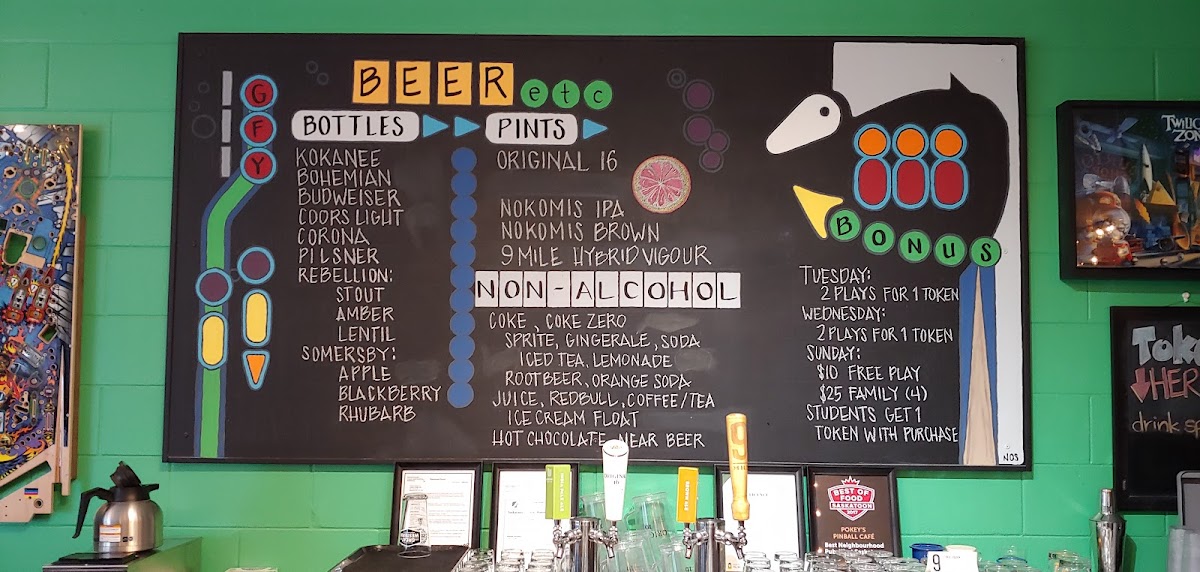 BEER etc
GFY
BOTTLES
KOKANEE
BOHEMIAN
BUDWEISER
COORS LIGHT
CORONA
PILSNER
REBELLION:
STOUT
AMBER
LENTIL
SOMERSBY:
APPLE
BLACKBERRY
RHUBARB
PINTS
ORIGINAL 16
NOKOMIS IPA
NOKOMIS BROWN
9 MILE HYBRID VIGOUR
NON-ALCOHOL
COKE, COKE ZERO
SPRITE, GINGERALE, SODA
ICED TEA, LEMONADE
ROOTBEER, ORANGE SODA
JUICE, REDBULL, COFFEE/TEA
ICE CREAM FLOAT
HOT CHOCOLATE, NEAR BEER
BONUS
TUESDAY:
2 PLAYS FOR 1 TOKEN
WEDNESDAY:
2 PLAYS FOR 1 TOKEN
SUNDAY:
$10 FREE PLAY
$25 FAMILY (4)
STUDENTS GET 1
TOKEN WITH PURCHASE
NOS
TWILIG
ZO
Toke
HER
drink sp
BEST OF
FOOD
SASKATOON
2017
POKEY'S
PINBALL CAFÉ
Best Neighbourhood
9
MILE
9